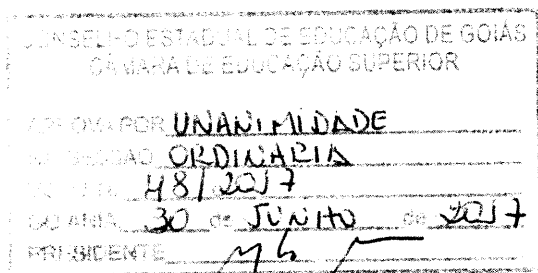 CONSELHO ESTADUAL DE EDUCAÇÃO DE GOIÁS
CÂMARA DE EDUCAÇÃO SUPERIOR
POR UNANIMIDADE
ORDINARIA
48/2017
30 de JUNHO de 2017
PRESIDENTE